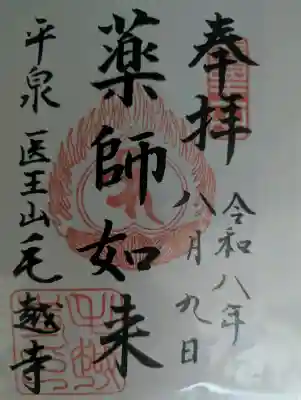 奉拝
令和八年
八月九日
薬師如来
平泉 医王山 毛越寺